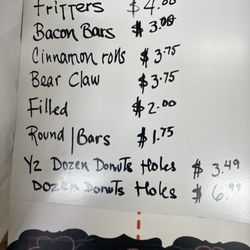 Fritters $4.00
Bacon Bars $3.00
Cinnamon rolls $3.75
Bear Claw $3.75
Filled $2.00
Round | Bars $1.75
Yz Dozen Donuts Holes $3.49
Dozen Donuts Holes $6.99